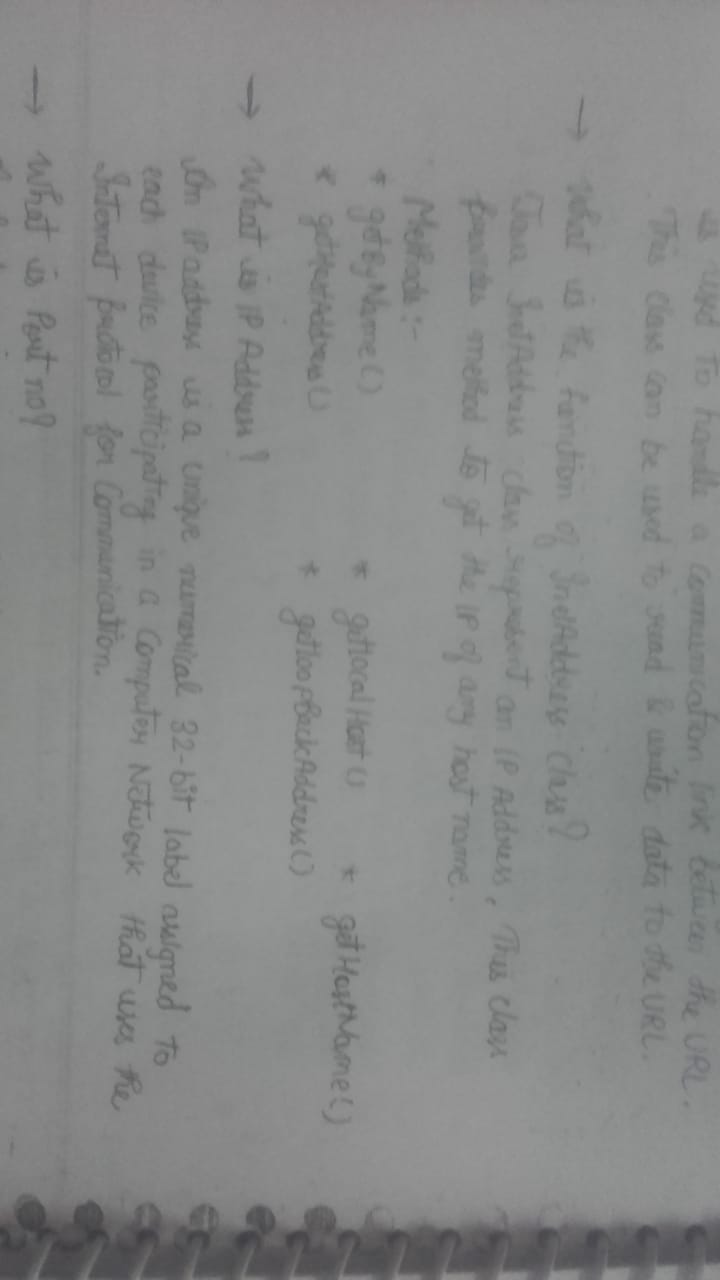 is used to handle a communication link between the URL.
This class can be used to read & write data to the URL.
→ What is the function of InetAddress class?
Java InetAddress class represent an IP Address. This class
provides method to get the IP of any host name.
Methods :-
* getByName() * getlocalHost() * getHostName()
* getHostAddress() * getloopBackAddress()
→ What is IP Address?
An IP address is a unique numerical 32-bit label assigned to
each device participating in a Computer Network that uses the
Internet protocol for Communication.
→ What is Port no?